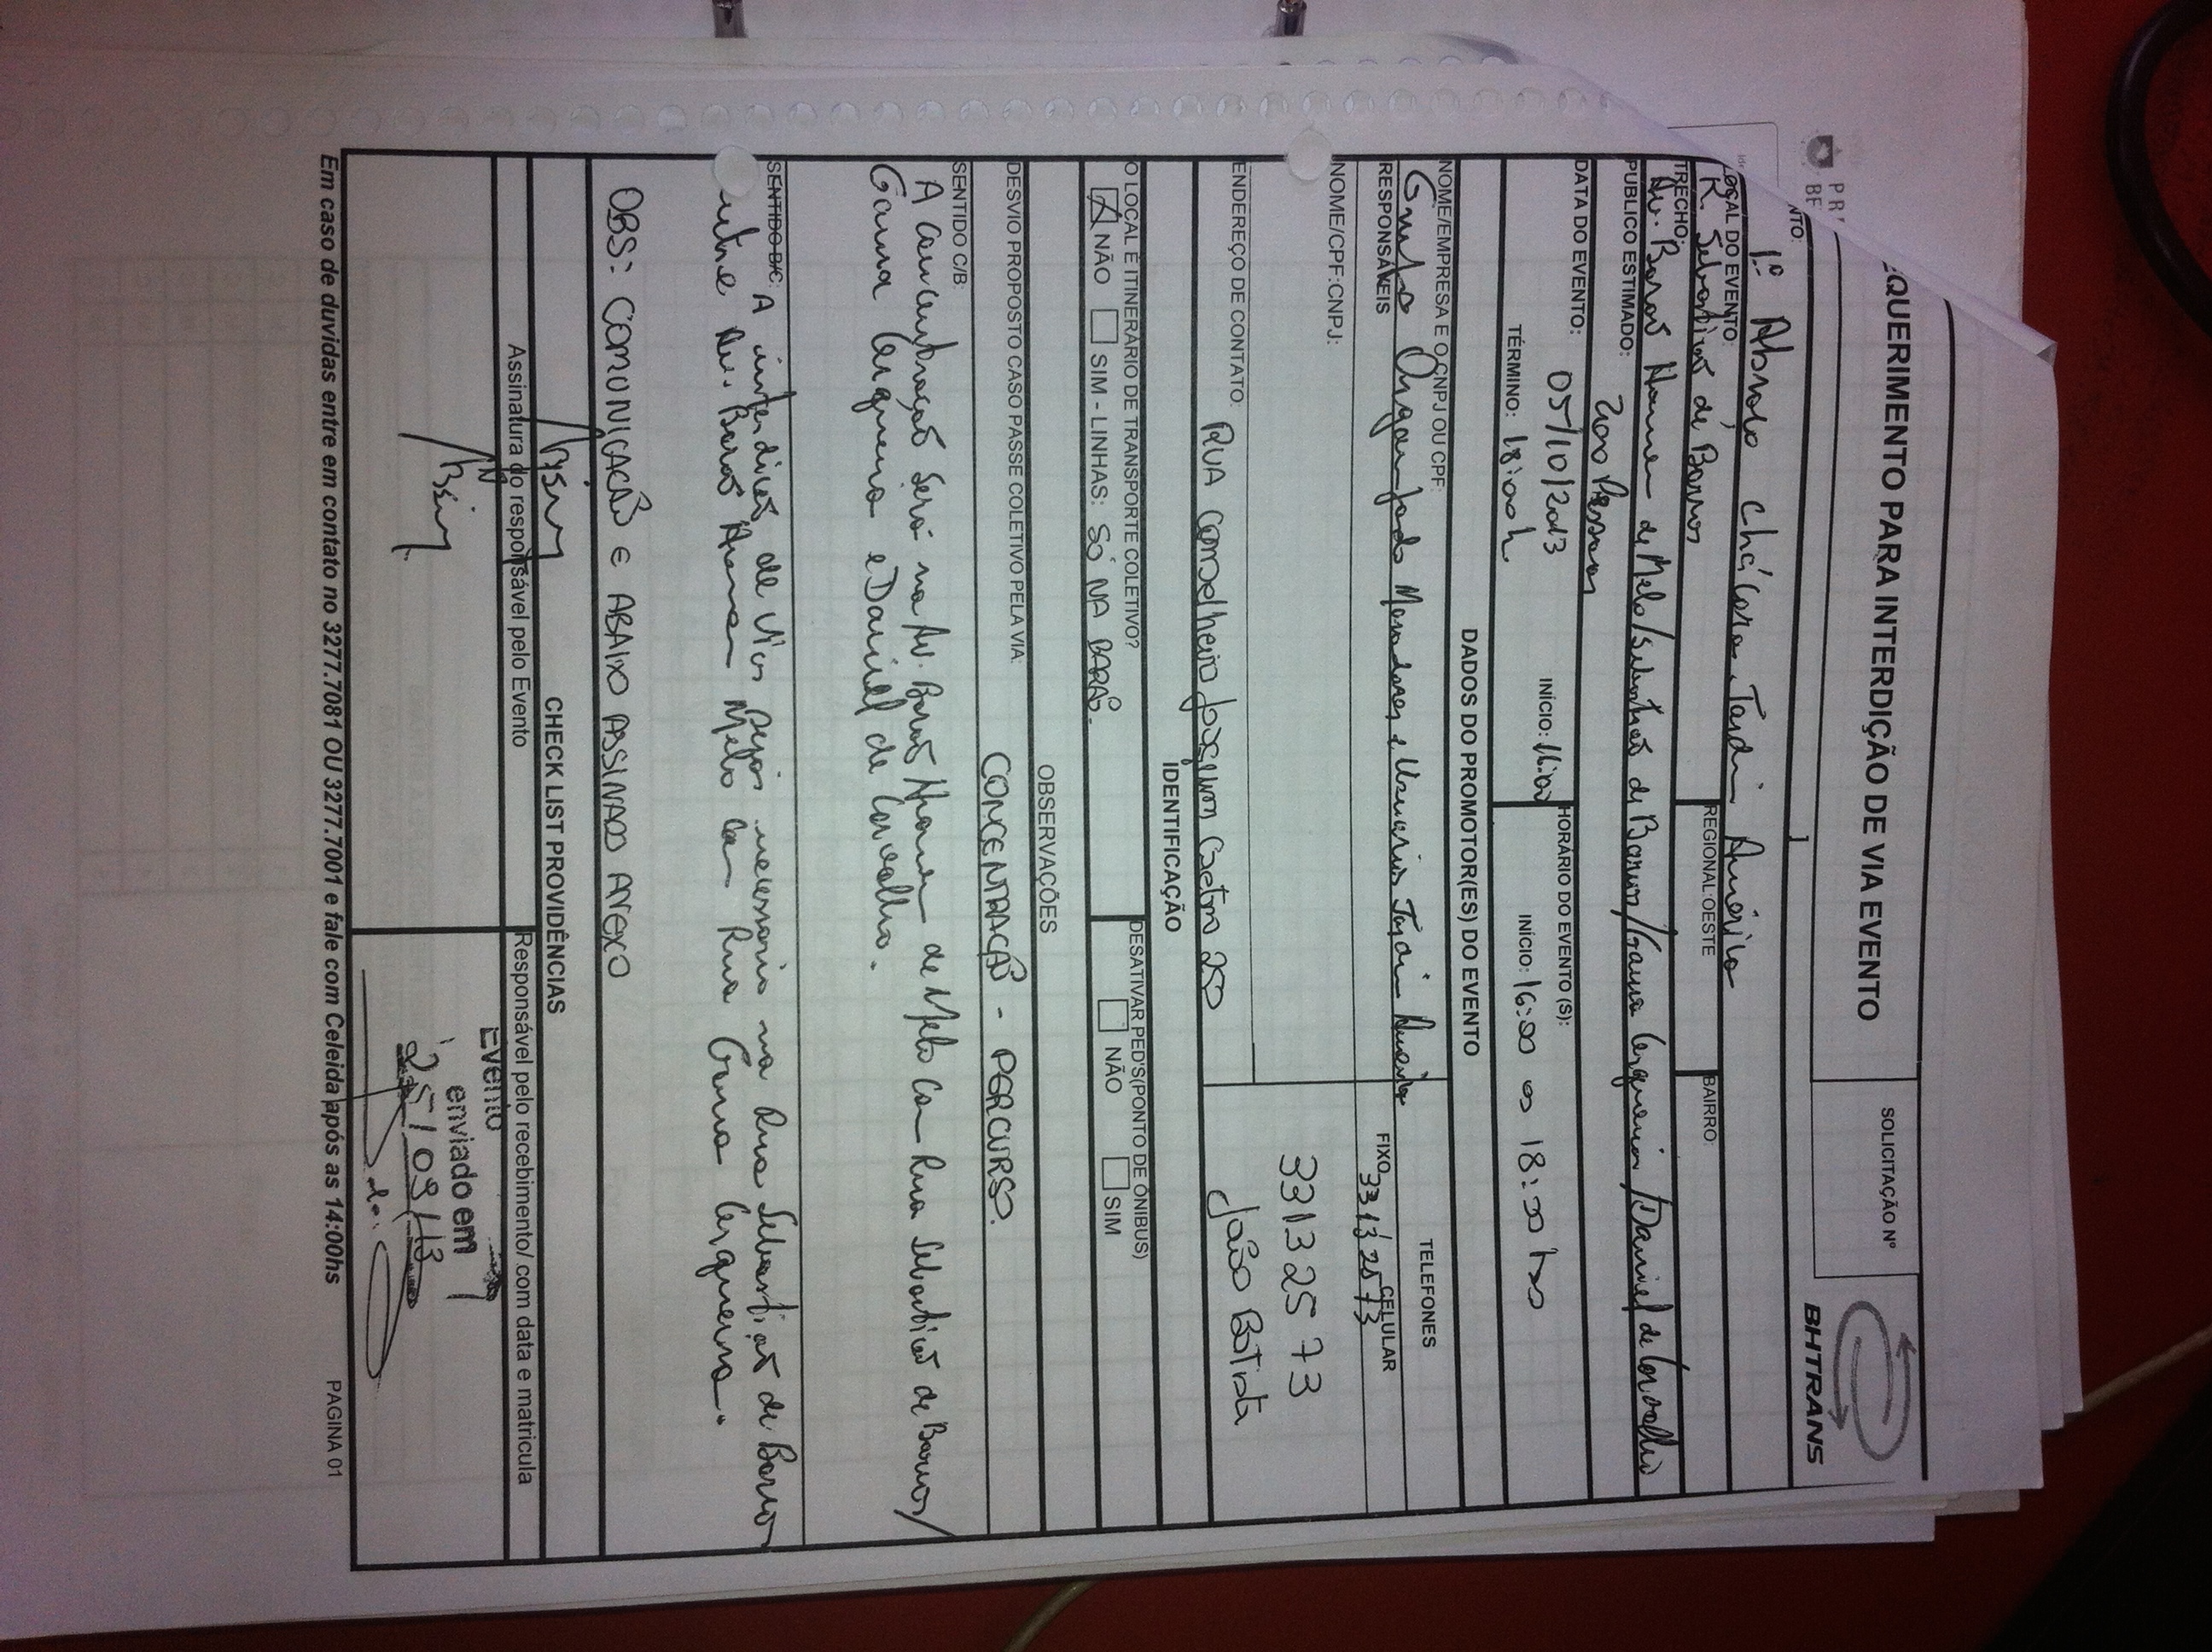 EQUERIMENTO PARA INTERDIÇÃO DE VIA EVENTO
SOLICITAÇÃO Nº
BHTRANS
NTO:
1º Abraço Chácara Jardim América
LOCAL DO EVENTO:
R. Sebastião de Barros
REGIONAL:OESTE
BAIRRO:
TRECHO:
Av. Barão Homem de Melo/Sebastião de Barros/Gama Cerqueira/Daniel de Carvalho
PUBLICO ESTIMADO:
2000 Pessoas
DATA DO EVENTO:
05/10/2013
INÍCIO:
HORÁRIO DO EVENTO (S):
TÉRMINO: 18:00h
INÍCIO: 16:00 as 18:30 hs
DADOS DO PROMOTOR(ES) DO EVENTO
NOME/EMPRESA E O CNPJ OU CPF:
TELEFONES
Grupo Organizado Moradores e Usuarios Jardim America
RESPONSÁVEIS
FIXO 3313 2573
CELULAR
NOME/CPF:CNPJ:
3313 25 73
ENDEREÇO DE CONTATO: RUA Conselheiro Joaquim Caetano 250
João Batista
IDENTIFICAÇÃO
O LOCAL É ITINERÁRIO DE TRANSPORTE COLETIVO?
DESATIVAR PED'S(PONTO DE ÔNIBUS)
X NÃO SIM - LINHAS: SÓ NA BARÃO.
NÃO SIM
OBSERVAÇÕES
DESVIO PROPOSTO CASO PASSE COLETIVO PELA VIA: CONCENTRAÇÃO - PERCURSO.
SENTIDO C/B:
A concentração será na Av. Barão Homem de Melo com Rua Sebastião de Barros/
Gama Cerqueira e Daniel de Carvalho.
SENTIDO B/C: A interdição de vias sejas necessario na Rua Sebastião de Barros
entre Av. Barão Homem Melo com Rua Gama Cerqueira.
OBS: COMUNICAÇÃO E ABAIXO ASSINADO ANEXO
CHECK LIST PROVIDÊNCIAS
Assinatura do responsável pelo Evento
Responsável pelo recebimento/ com data e matricula
Evento
enviado em
25/09/13
Em caso de duvidas entre em contato no 3277.7081 OU 3277.7001 e fale com Celeida após as 14:00hs
PAGINA 01